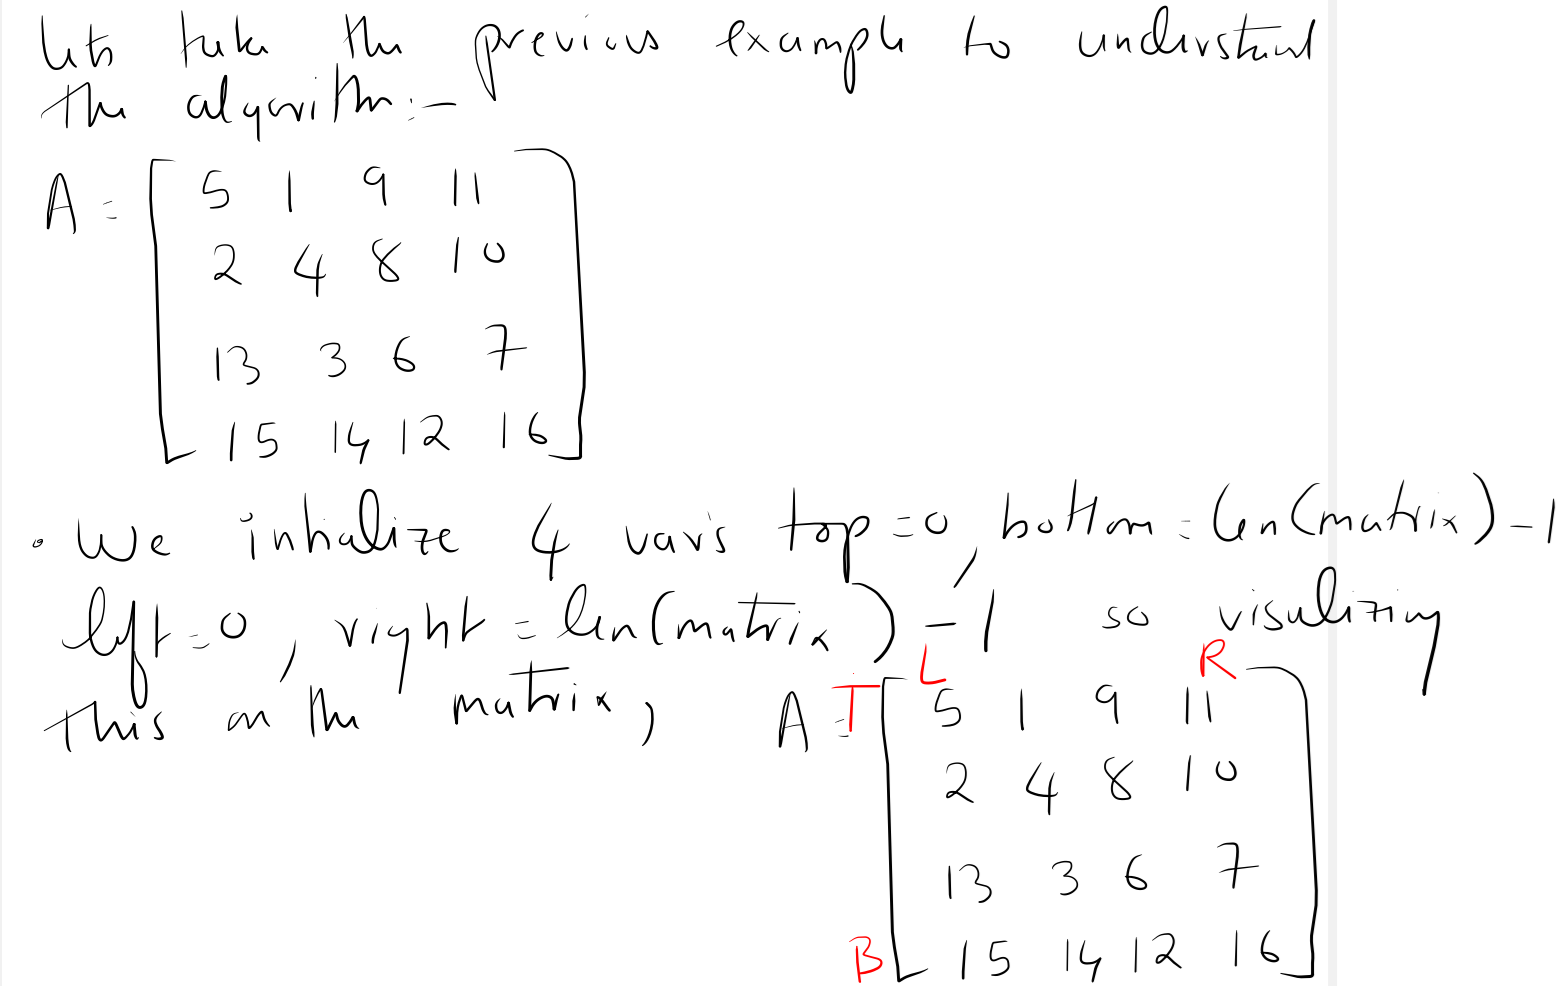 lets take the previous example to understand
the algorithm:-
A = [ 5 1 9 11
2 4 8 10
13 3 6 7
15 14 12 16 ]
• We initialize 4 var's top=0, bottom = len(matrix)-1
left=0, right = len(matrix)-1 so visulizing
this on the matrix,
L R
A = T [ 5 1 9 11
2 4 8 10
13 3 6 7
B 15 14 12 16 ]